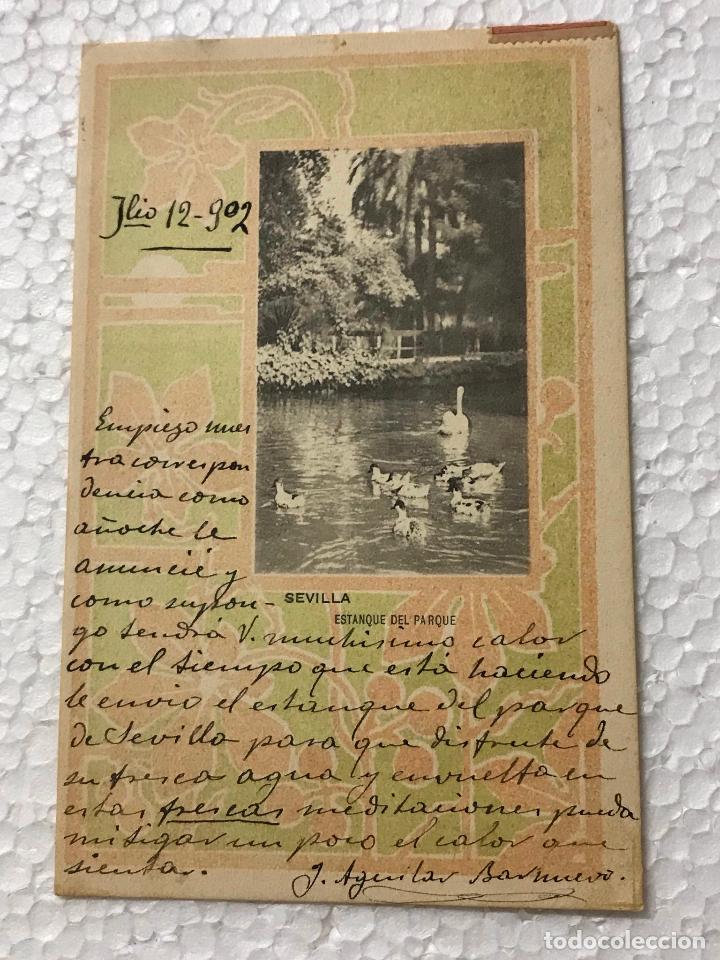 Jlio 12-902
Empiezo nues
tra correspon
dencia como
añoche le
anuncié y
como supon-
go tendrá V. muchisimo calor
con el tiempo que está haciendo
le envio el estanque del parque
de Sevilla para que disfrute de
su fresca agua y envuelta en
estas frescas meditaciones pueda
mitigar un poco el calor que
sienta.
J. Aguilar Barnuevo.
SEVILLA
ESTANQUE DEL PARQUE
todocoleccion